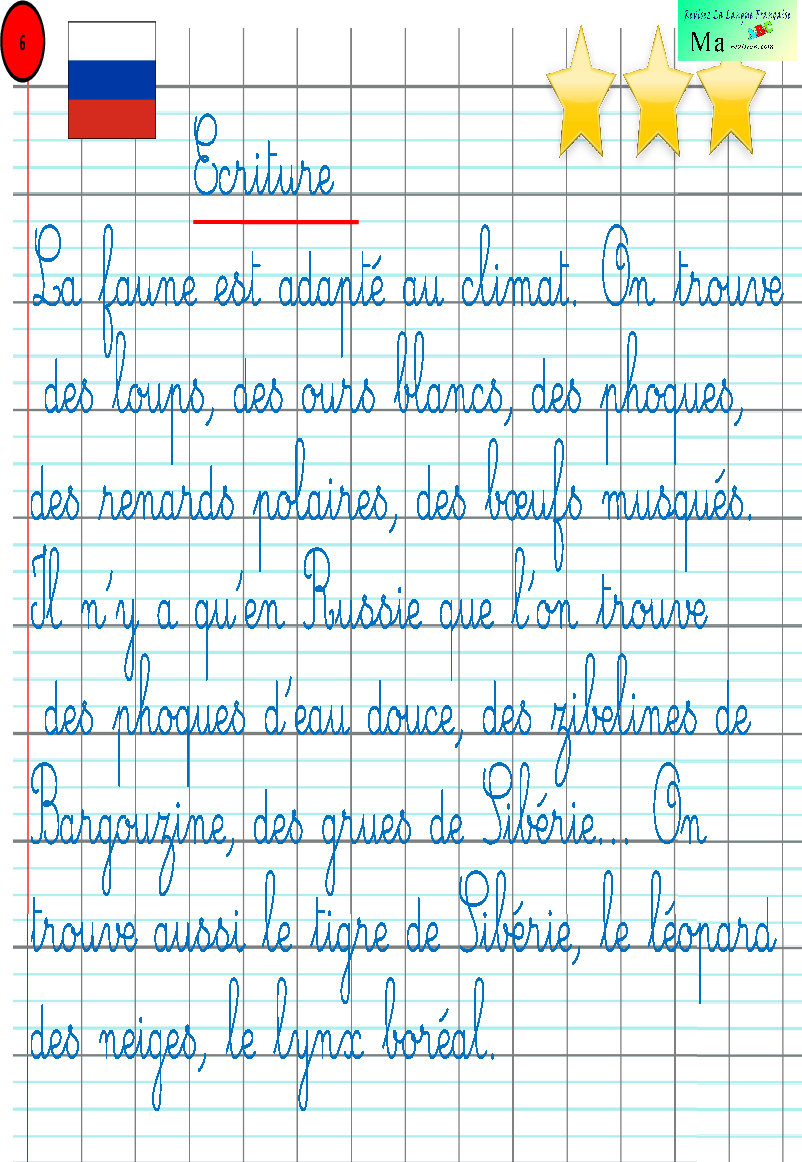 6
Revisez La Langue Française
ABC
Ma
Ecriture
La faune est adapté au climat. On trouve
des loups, des ours blancs, des phoques,
des renards polaires, des bœufs musqués.
Il n'y a qu'en Russie que l'on trouve
des phoques d'eau douce, des zibelines de
Bargouzine, des grues de Sibérie... On
trouve aussi le tigre de Sibérie, le léopard
des neiges, le lynx boréal.